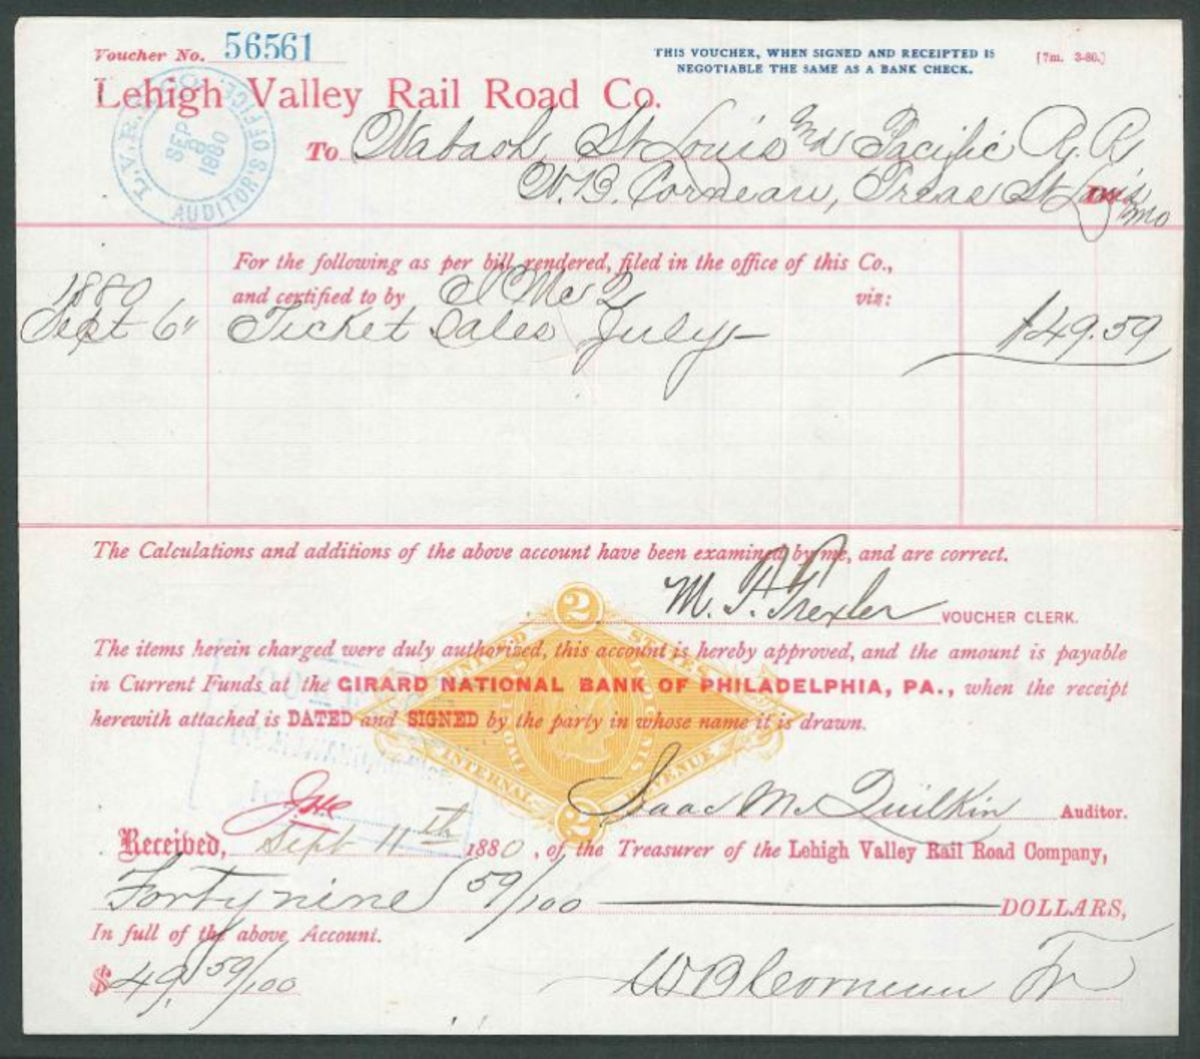 Voucher No. 56561
THIS VOUCHER, WHEN SIGNED AND RECEIPTED IS
NEGOTIABLE THE SAME AS A BANK CHECK.
[7m. 3-80.]
Lehigh Valley Rail Road Co.
L.V.R.R. CO.
SEP
1880
AUDITOR'S OFFICE
To Wabash St Louis and Pacific R.R.
W.B. Corneau, Treas St Louis Mo
Dr.
For the following as per bill rendered, filed in the office of this Co.,
and certified to by I McQ viz:
1880
Sept 6" Ticket Sales July $49.59
The Calculations and additions of the above account have been examined by me, and are correct.
M. F. Trexler VOUCHER CLERK.
2
UNITED STATES
The items herein charged were duly authorized, this account is hereby approved, and the amount is payable
in Current Funds at the GIRARD NATIONAL BANK OF PHILADELPHIA, PA., when the receipt
herewith attached is DATED and SIGNED by the party in whose name it is drawn.
INTERNAL REVENUE
2
Isaac McQuilkin Auditor.
Received, Sept 11th 1880, of the Treasurer of the Lehigh Valley Rail Road Company,
Forty nine 59/100 DOLLARS,
In full of the above Account.
$49, 59/100
WB Corneau Tr